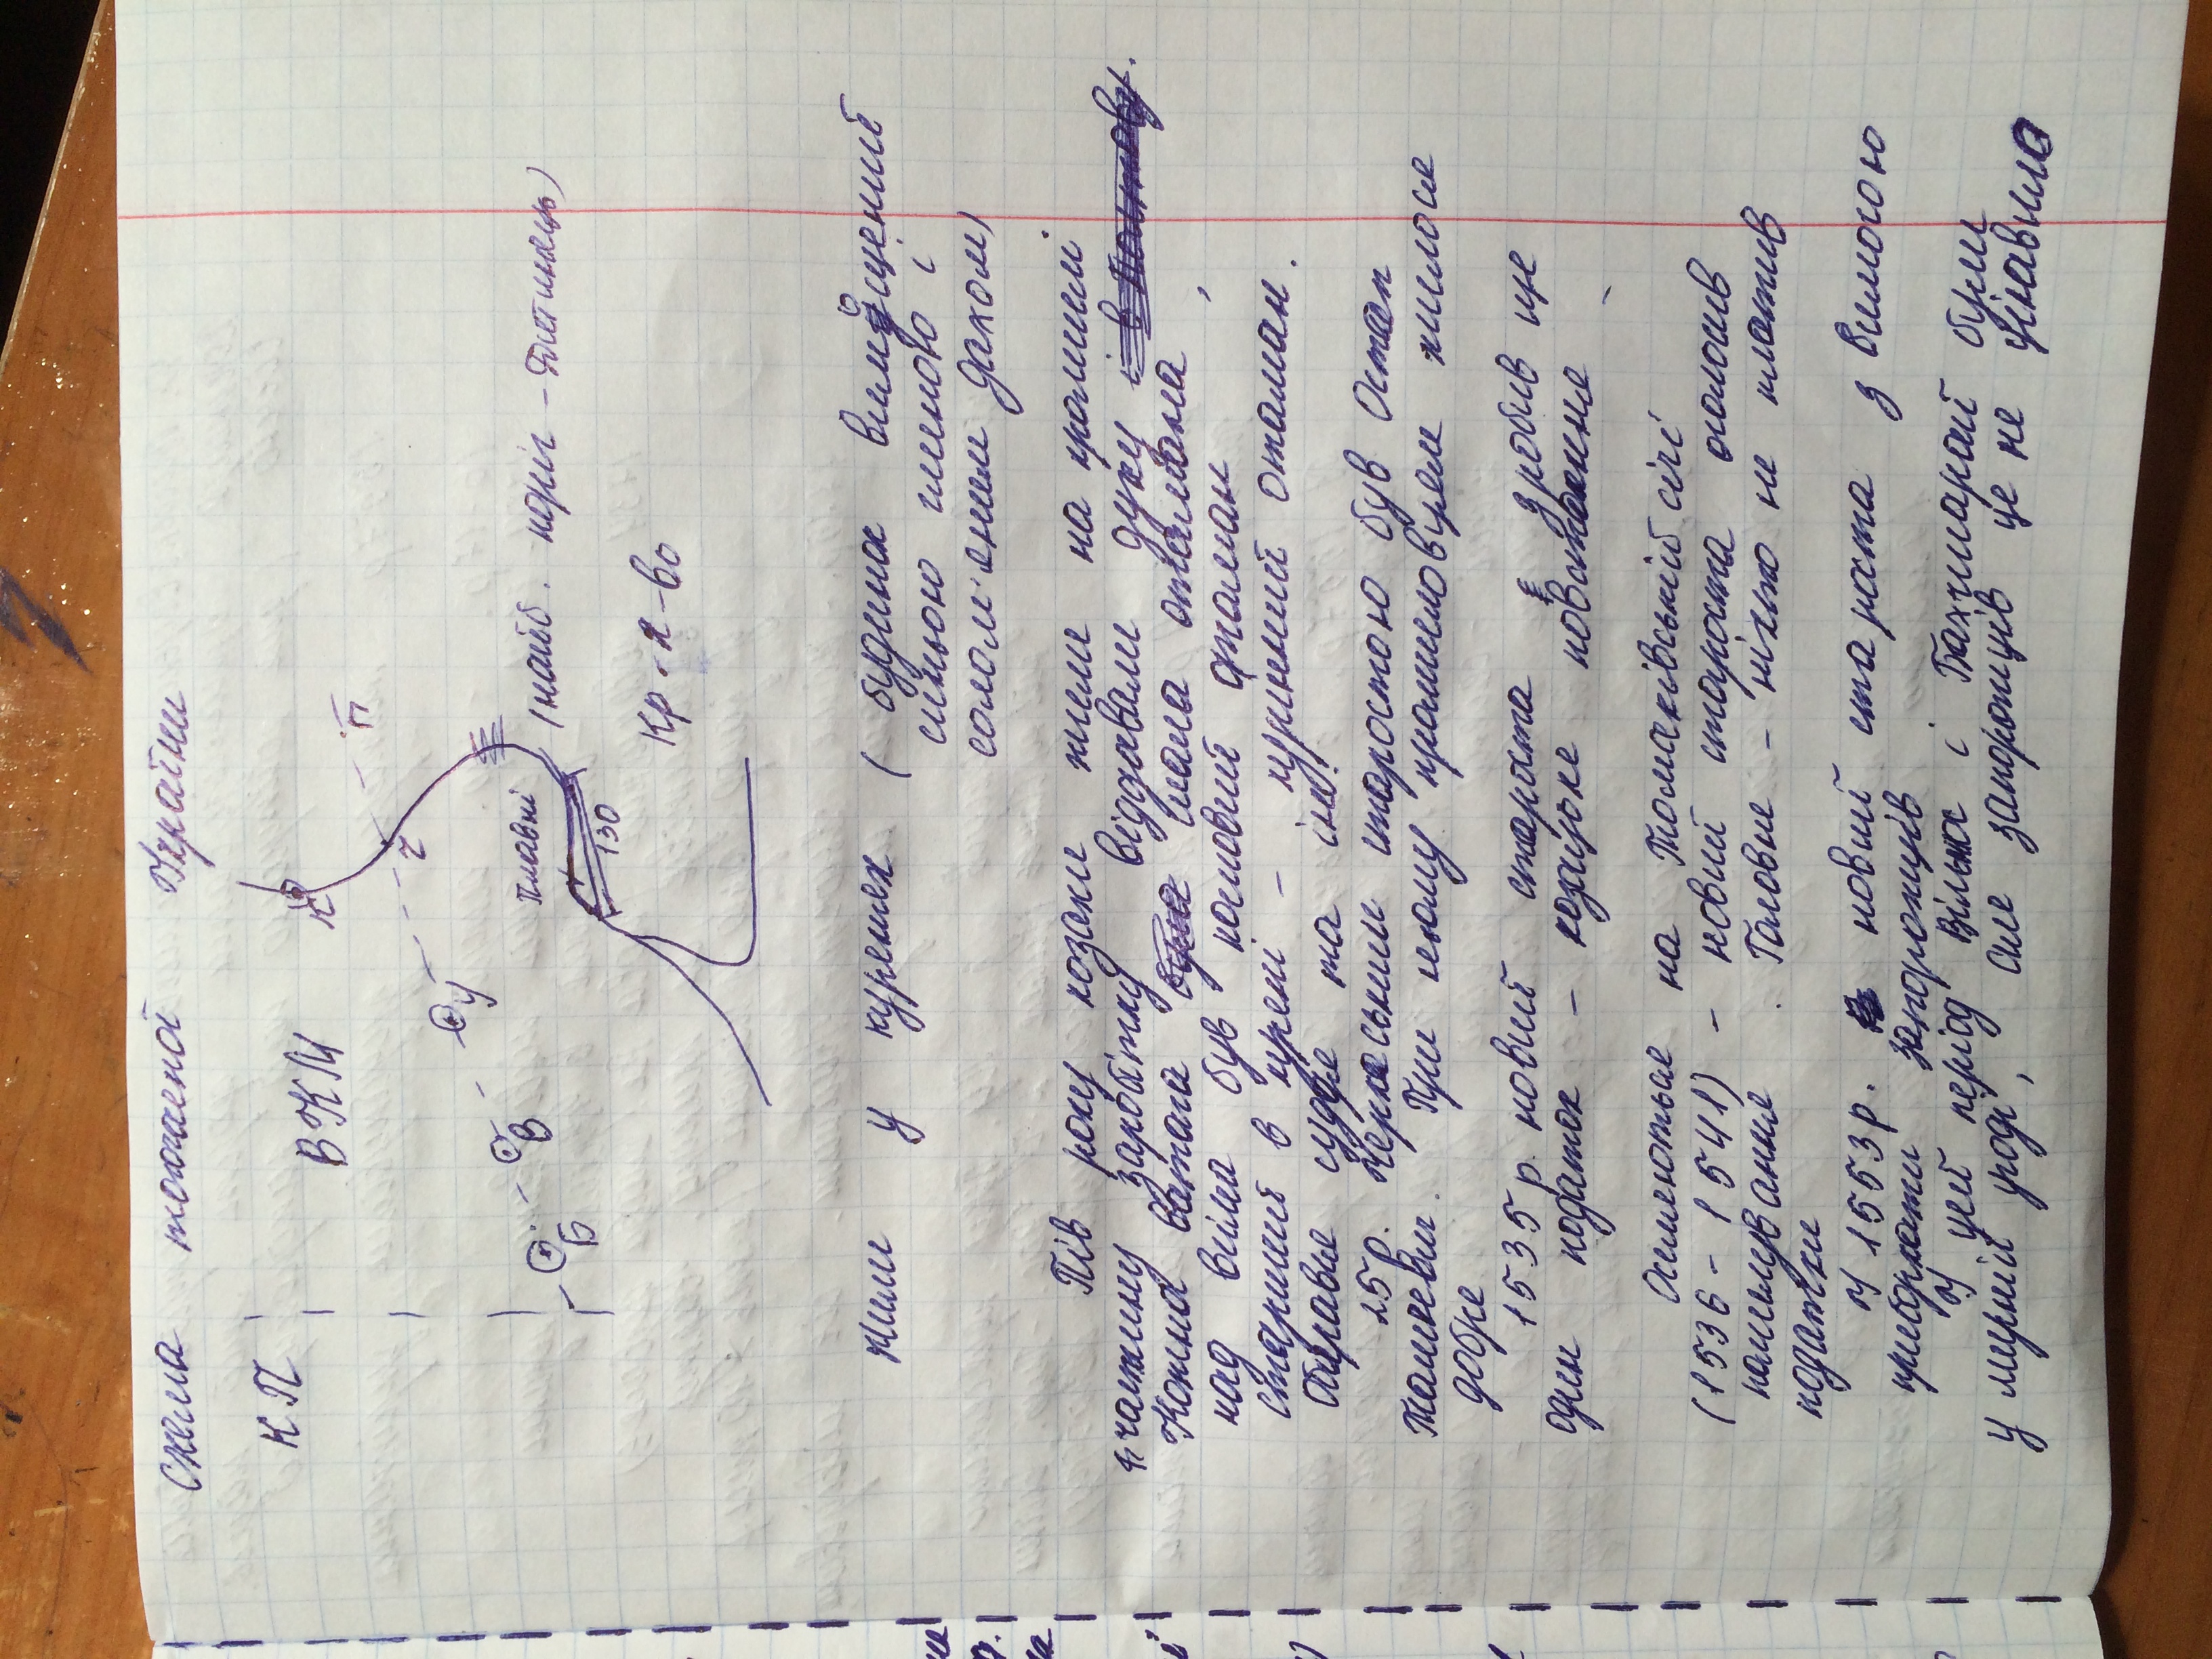 Схема тогочасної України
КП
ВКМ
К
П
Ч
У
В
Б
плавні
(найб. поріг - )
130
Кр. х-во
Жили у куренях ( будинок вимощений
синьою глиною і
солом'яним дахом)
Пів року козаки жили на промислі
частину заробітку віддавали
Кожна ватага мала отамана,
над всіма був кошовий отаман
старший в курені - курінний отаман.
Обирався суддя та ін.
25 р. Черкаським старостою був Остап
Дашкевич. При ньому промисловцям жилося
добре
1535 р. новий староста зробив ще
один податок - козацьке повстання
Оселяються на Томаківській січі
(1536 - 1541) - новий староста оголосив
помилування. Головне - ніхто не платив
податки
У 1553 р. новий староста з вимогою
приборкати запорожців
У цей період Вільна і Бахчисарай були
у мирній угоді, але запорожців це не цікавило